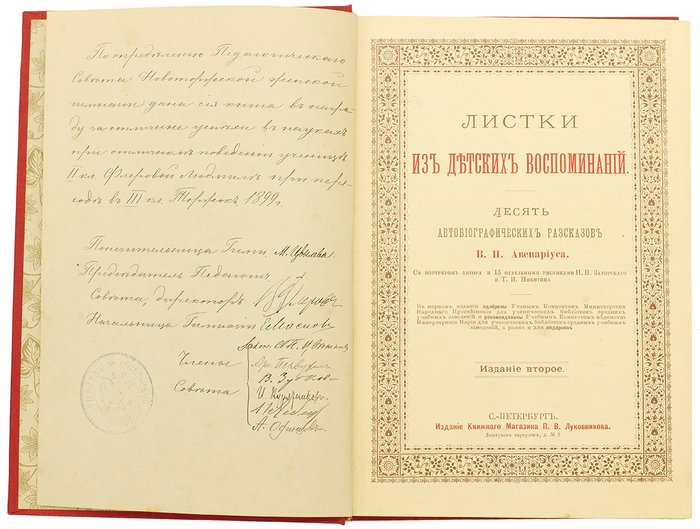 По опредѣленію Педагогическаго
Совѣта Новоторжской женской
гимназіи дана сія книга въ награ-
ду за отличные успѣхи въ наукахъ
при отличномъ поведеніи ученицѣ
II кл. Флеровой Людмилѣ при пере-
ходѣ въ III кл. Торжокъ 1899 г.
Попечительница Гимн.
Предсѣдатель Педагогич.
Совѣта, директоръ
Начальница Гимназіи
Члены
Совѣта
ЛИСТКИ
ИЗЪ ДѢТСКИХЪ ВОСПОМИНАНІЙ.
ДЕСЯТЬ
АВТОБІОГРАФИЧЕСКИХЪ РАЗСКАЗОВЪ
В. П. Авенаріуса.
Съ портретомъ автора и 15 отдѣльными рисунками Н. П. Загорскаго
и Т. И. Никитина
Въ первомъ изданіи одобрены Ученымъ Комитетомъ Министерства
Народнаго Просвѣщенія для ученическихъ библіотекъ среднихъ
учебныхъ заведеній и рекомендованы Учебнымъ Комитетомъ вѣдомства
Императрицы Маріи для ученическихъ библіотекъ среднихъ учебныхъ
заведеній, а равно и для подарковъ
Изданіе второе.
С.-ПЕТЕРБУРГЪ.
Изданіе Книжнаго Магазина П. В. Луковникова.
Лештуковъ переулокъ, д. № 2